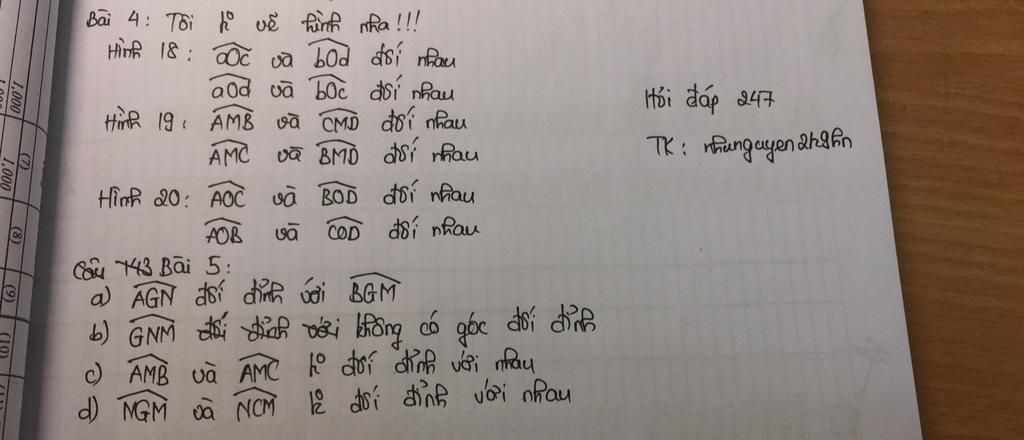 Bài 4: Tôi k° vẽ hình nha!!!
Hình 18: aOc và bOd đối nhau
aOd và bOc đối nhau
Hình 19: AMB và CMD đối nhau
AMC và BMD đối nhau
Hình 20: AOC và BOD đối nhau
AOB và COD đối nhau
Hỏi đáp 247
TK: nhunguyen2h9hn
Câu 143 Bài 5:
a) AGN đối đỉnh với BGM
b) GNM đối đỉnh với không có góc đối đỉnh
c) AMB và AMC k° đối đỉnh với nhau
d) NGM và NCM k° đối đỉnh với nhau
1.000
1.000
(7)
(8)
(9)
(10)